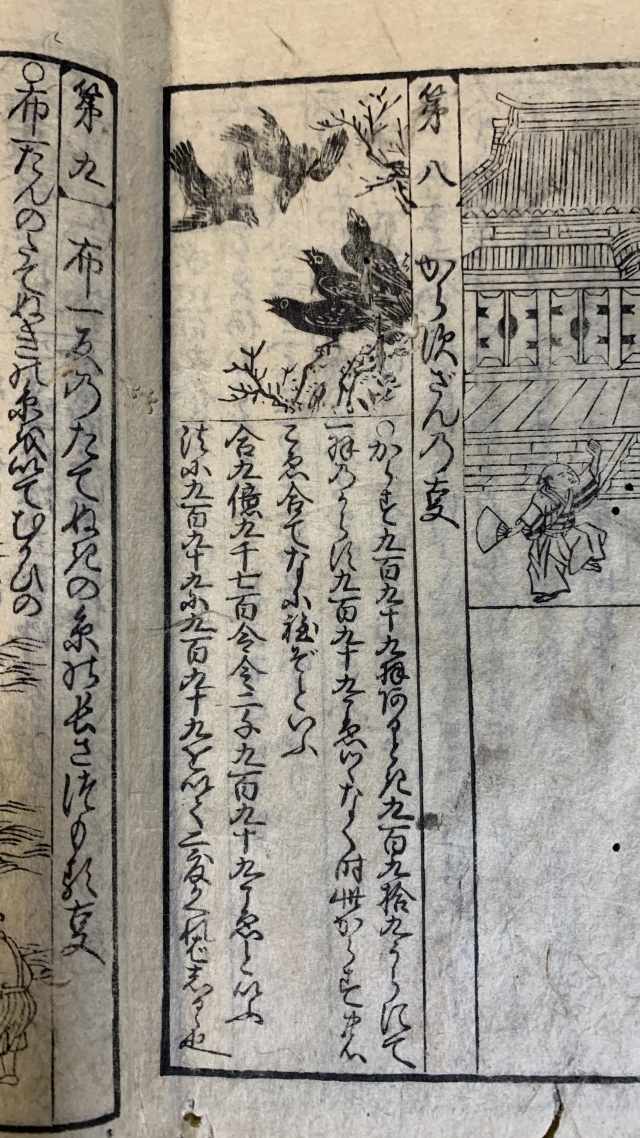 第八
からすざんの事
○からす九百九十九羽阿りとき九百九拾九うらにて
一羽のからす九百九十九こゑづゝなく時此からす
こゑ合てなに程ぞといふ
合九億九千七百令令二千九百九十九こゑといふ
法に九百九十九に九百九十九を以て二度かくればしるゝ也
第九
布一反のたてぬきの糸の長さをつもる事
○布一たんのたてぬきの糸を以てむかひの